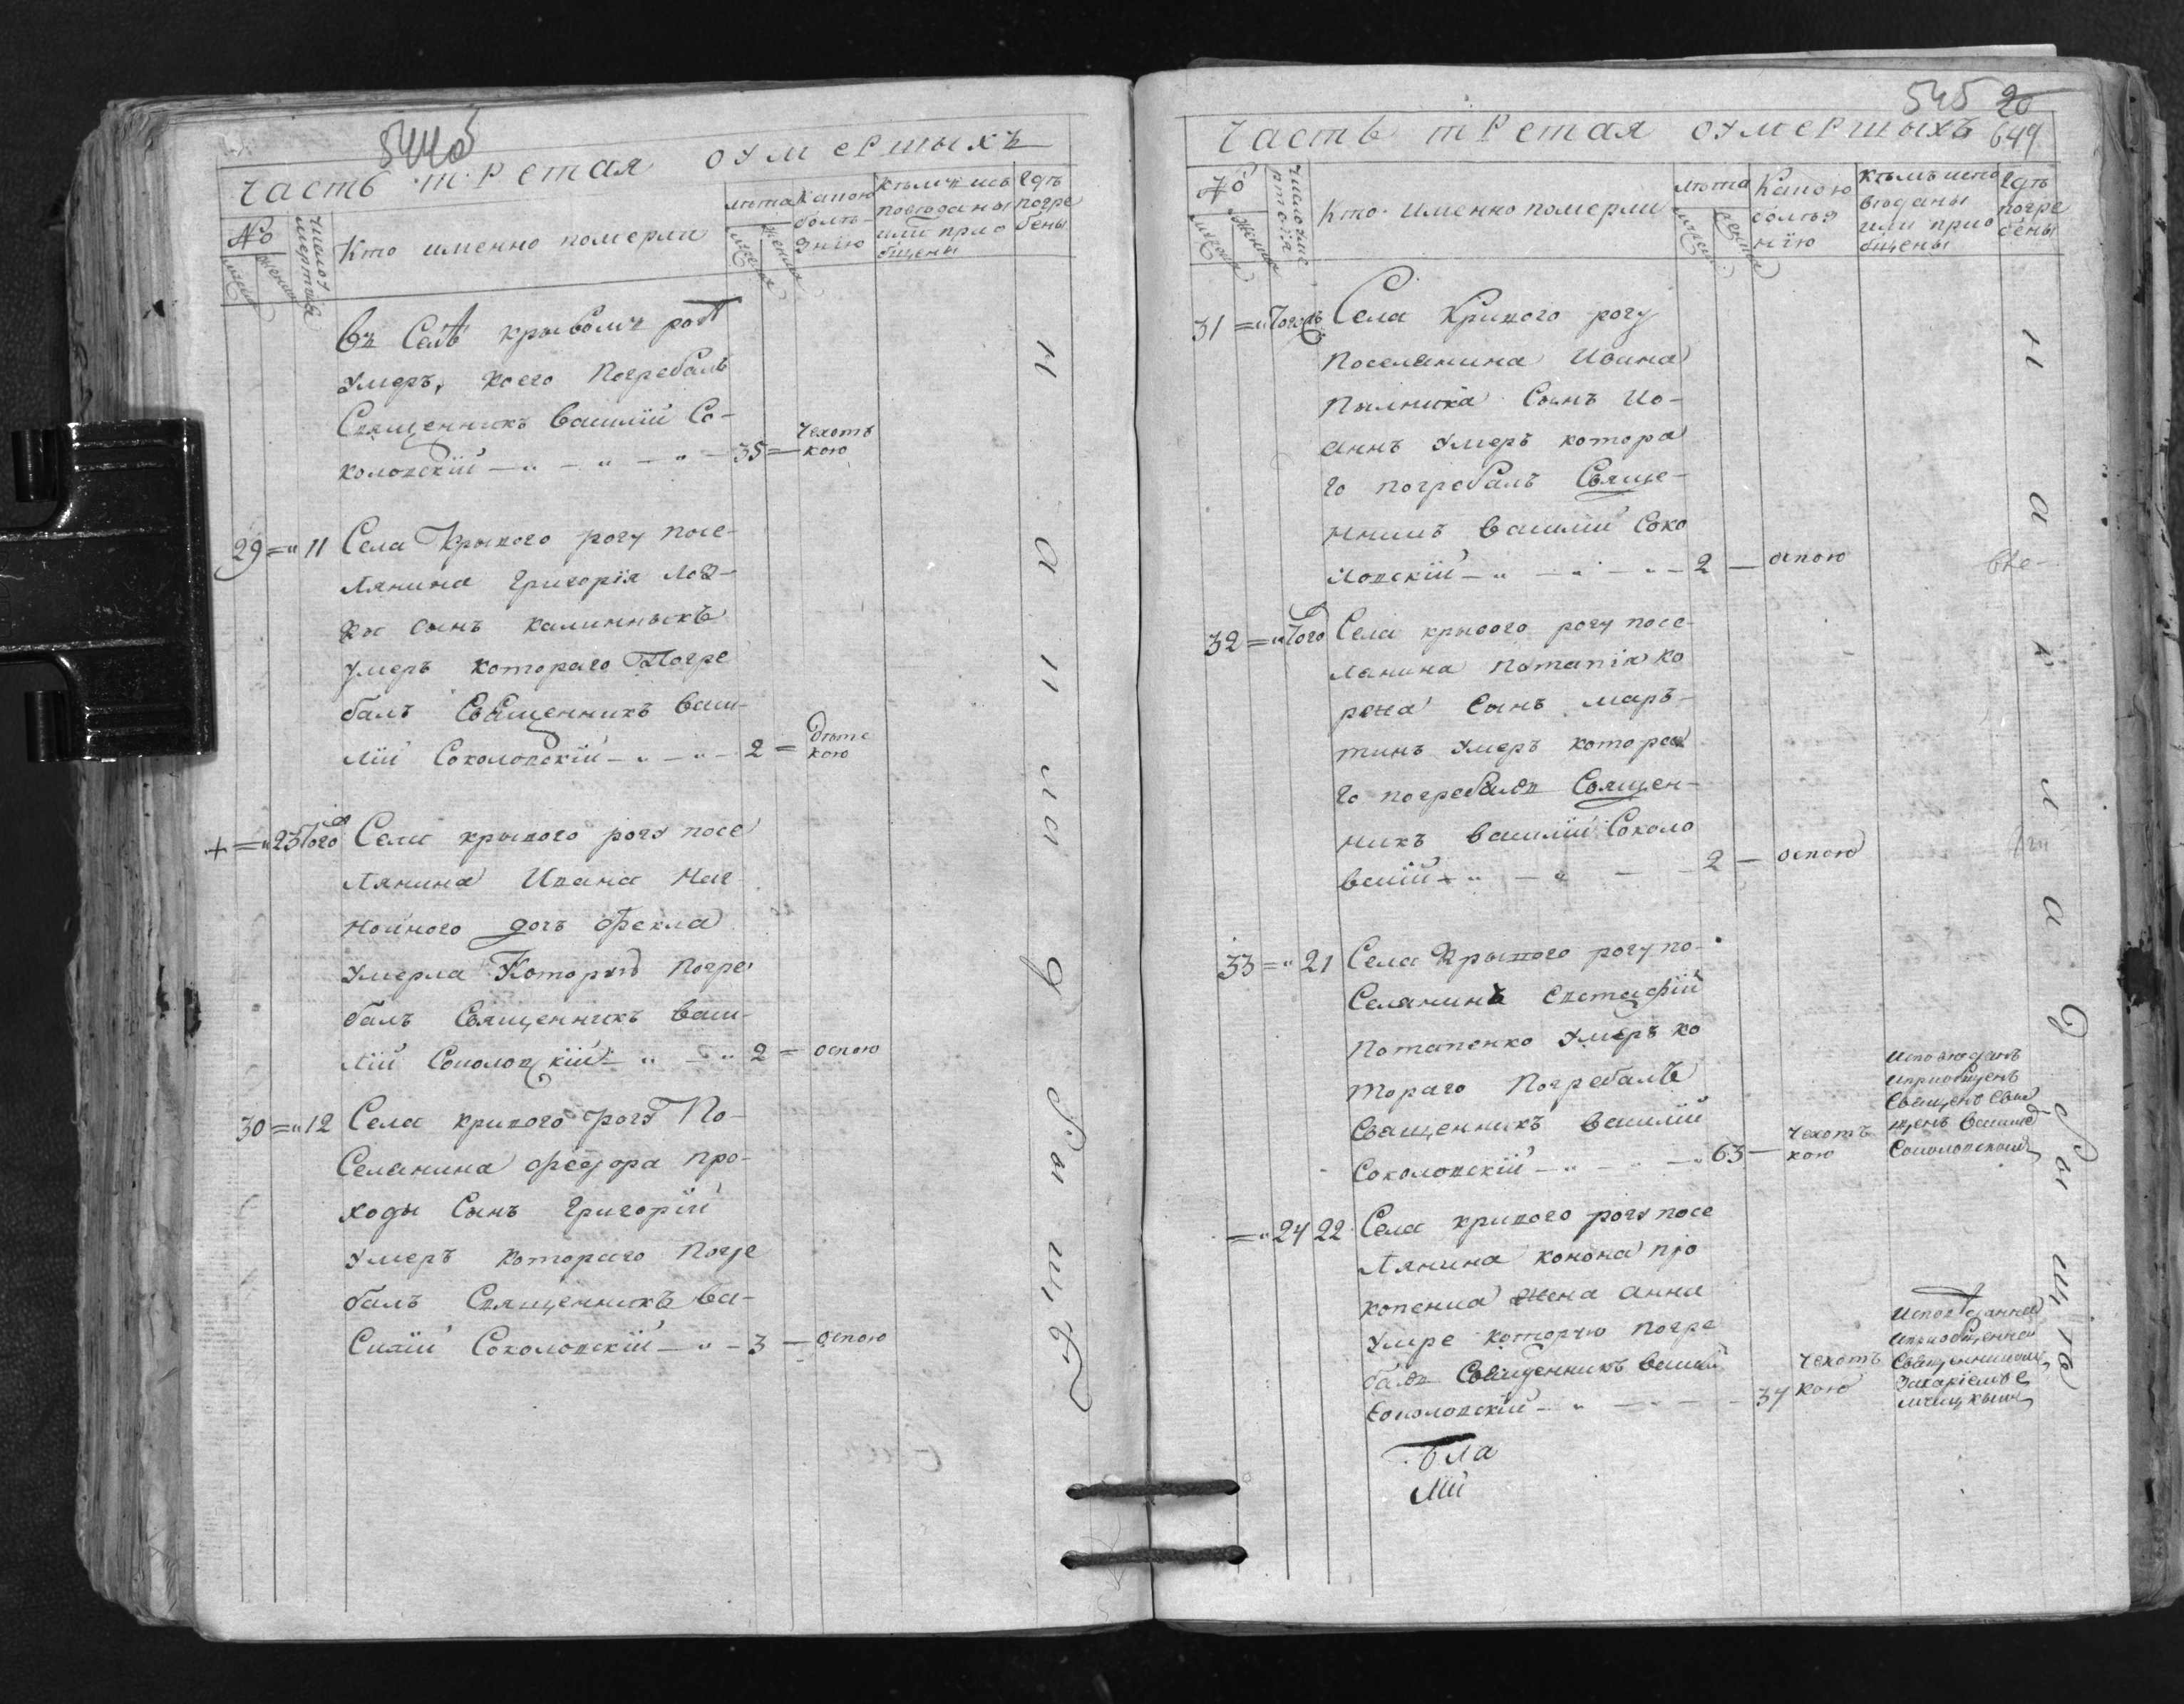 544об
Часть третая оумершыхъ
№
мужеска
женска
Число смертїя
Кто именно померли
лѣта
мужеска
женска
Какою болѣзнїю
Кѣмъ исповѣданы или приобщены
Гдѣ погребены
въ Селѣ крывомъ розѣ
Умеръ, коего Погребалъ
Священникъ Василїй Со-
коловскїй — 35 = Чехоткою
29 = " 11 Села Крывого рогу посе-
лянина Григорїя
сынъ Каленныкъ
умеръ котораго Погре
балъ Священникъ Васи-
лїй Соколовскїй — 2 = дѣтскою
+ = " 23 Того Села крывого рогу посе
лянина Ивана Наг-
ноиного дочь Фекла
умерла Которую Погре
балъ Священникъ Васи-
лїй Соколовскїй — 2 = оспою
30 = " 12 Села кривого рогу По-
селянина Феодора Про-
ходы Сынъ Григорїй
умеръ котораго Погре
балъ Священникъ Ва-
силїй Соколовскїй — 3 — оспою
на кладбищѣ
545 20
649
Часть третая оумершыхъ
№
мужеска
женска
Число смертїя
Кто именно померли
лѣта
мужеска
женска
Какою болѣзнїю
Кѣмъ исповѣданы или приобщены
Гдѣ погребены
31 = " Тогожъ Села Кривого рогу
Поселянина Ивана
Пылника Сынъ Ио-
аннъ умеръ котора
го погребалъ Свяще-
нникъ Василїй Соко
ловскїй — 2 — оспою
32 = " Того Села крывого рогу посе-
лянина Потапїя Ко
рена Сынъ маръ-
тинъ умеръ котора
го погребалъ Священ-
никъ Василїй Соколо
вскїй — 2 — оспою
33 = " 21 Села Крывого рогу по-
Селянинъ Евстафїй
Потапенко умеръ ко
тораго Погребалъ
Священникъ Василїй
Соколовскїй — 63 — чехоткою
Исповѣданъ
иприобщенъ
Соколовскимъ
= " 24 22 Села кривого рогу посе
лянина Конона Про
копенка жена анна
умре которую погре
балъ Священникъ Василїй
Соколовскїй — 34 Чехоткою
Исповѣданна
иприобщенна
Священникомъ
на кладбища
Бла
лїй